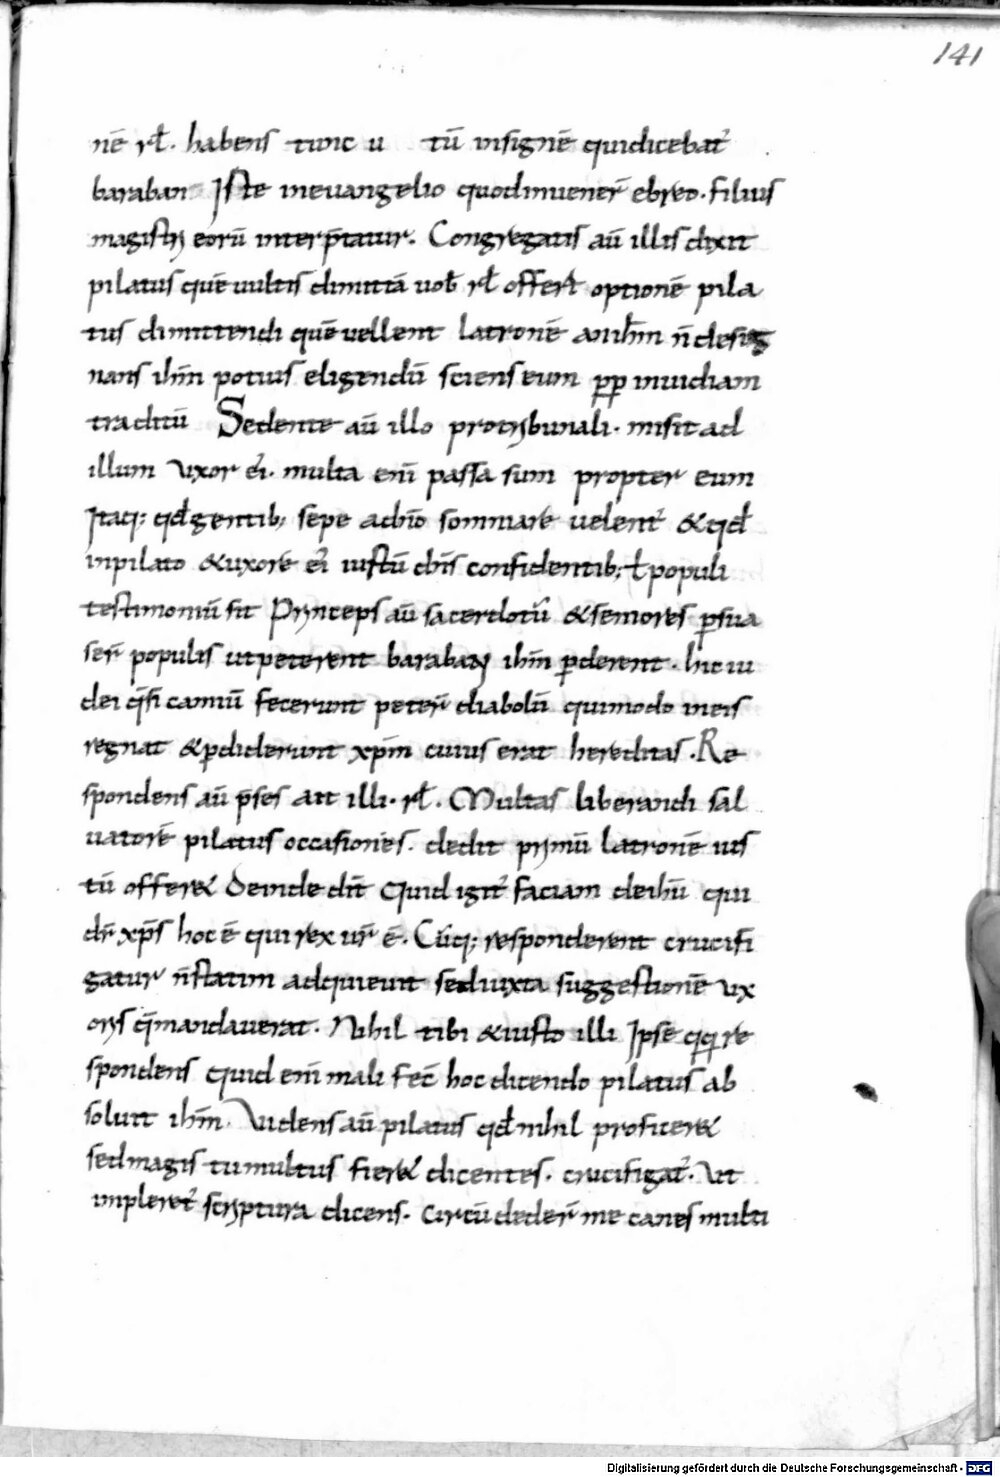 141
nē rł. habens tunc u tū insignē quidicebat᷑
baraban Iste ineuangelio quodinuener̄ ebreo. filius
magistri eorū interp̄tatur. Congregatis aū illis dixit
pilatus quē uultis dimittā uob̄ rł offert optionē pila
tus dimittendi quē uellent latronē an ih̄m n̄ desig
nans ih̄m potius eligendū sciens eum pp̄ inuidiam
traditū Sedente aū illo protribunali. misit ad
illum uxor ei᷑. multa eni᷑ passa sum propter eum
Itaq; qđ gentib; sepe adn̄o somniare uelent᷑ & qđ
inpilato & uxore ei᷑ iustū dn̄s confidentib; ł populi
testimoniū sit Princeps aū sacerdotū & seniores p̱sua
ser̄ populis utpeterent baraban ih̄m p̱derent. hic iu
dei q̄si caniū fecerunt peter̄ diabolū quimodo ineis
regnat & p̱diderunt xp̄m cuius erat hereditas. Re
spondens aū p̄ses ait illi. rł. Multas liberandi sal
uatorē pilatus occasiones. dedit primū latronē ius
tū offer& Deinde dīt Quid igit᷑ faciam deihū qui
dr̄ xp̄s hoc ē qui rex ur̄ ē. Cūq; responderent crucifi
gatur n̄ statim adquieuit sed iuxta suggestionē ux
oris q̄ mandauerat. Nihil tibi & iusto illi Ipse qq; re
spondens quid eni᷑ mali fec̄ hoc dicendo pilatus ab
soluit ih̄m. Uidens aū pilatus qđ nihil proficer&
sed magis tumultus fier& dicentes. crucifigat᷑. Ut
impleret᷑ scriptura dicens. Circū deder̄ me canes multi
Digitalisierung gefördert durch die Deutsche Forschungsgemeinschaft - DFG